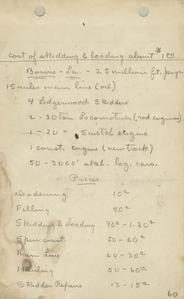 Cost of Skidding & loading about $1.00
Bowie - La. - 25 million ft. per yr
15 miles main line (oil)
4 Lidgerwood Skidders
2 - 30 ton Locomotives (rod engines)
1 - 20 - Switch engine
1 const. engine (new track)
50 - 3000' skel. log. cars.
Prices
10¢
Felling 50¢
Skidding & Loading 90¢ - 1.20¢
Spur const. 50 - 60¢
Main Line 20 - 30¢
50 - 60¢
Skidder Repairs 13 - 15¢
60